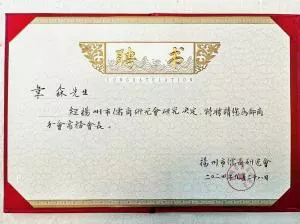 聘书
CONGRATULATION
章森先生
经扬州市儒商研究会研究决定，特聘请您为邮商
分会常务会长。
扬州市儒商研究会